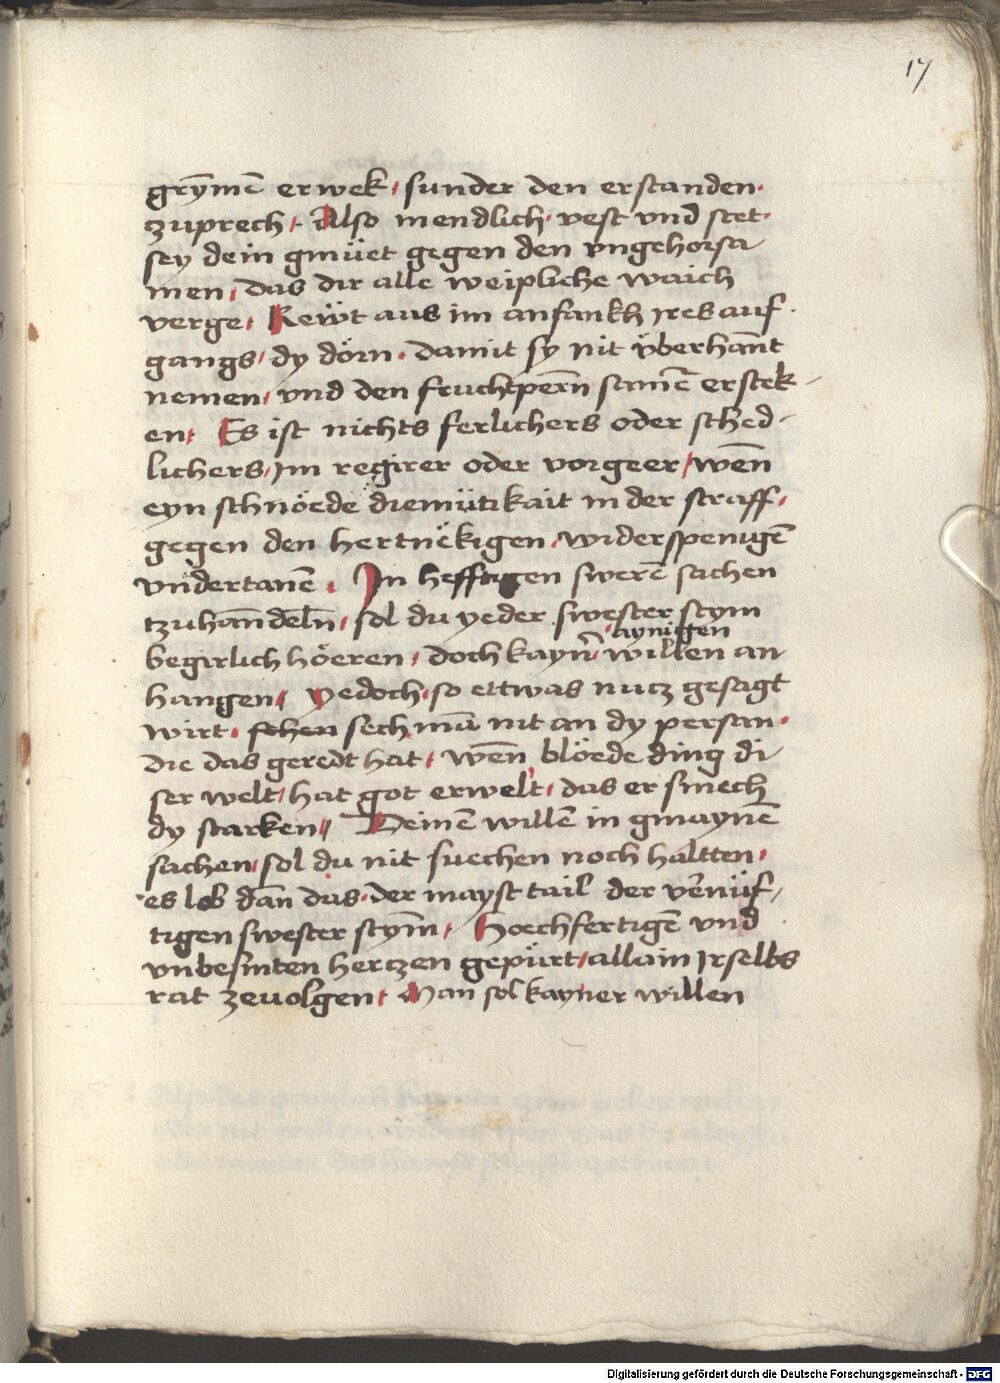 17
grȳmē erwek, sunder den erstanden.
zuprech. Also mendlich, vest vnd stet,
sey dein gmüet gegen den vngehorsa
men, das dir alle weipliche waich
verge, Rewt aus im anfankh ires auf
gangs, dy dörn. damit sy nit v̈berhannt
nemen, vnd den fruchtpern̄ samē erstek-
en, Es ist nichts ferlichers oder sched-
lichers, im regirer oder vorgeer, wēn
eyn schnöede diemütikait in der straff,
gegen den hertnëkigen, widerspenigē
vndertanē. In hefftigen swerē sachen
tzuhān deln̄, sol du yeder swester stym
aynigen
begirlich höeren, doch kayn̄ willen an
hangen, yedoch, so ettwas nucz gesagt
wirt, sehen sech mā nit an dy person.
die das geredt hat, wēn blöede ding di
ser welt, hat got erwelt, das er smech
dy starken, Deinē willē in gmaynē
sachen, sol du nit suechen noch haltten,
es lob dān das, der mayst tail der vernüf,
tigen swester stym̄, Hoechfertigē vnd
vnbesinten hertzen gepürt, allain ir selbs
rat zeuolgen, Man sol kayner willen
Digitalisierung gefördert durch die Deutsche Forschungsgemeinschaft - DFG